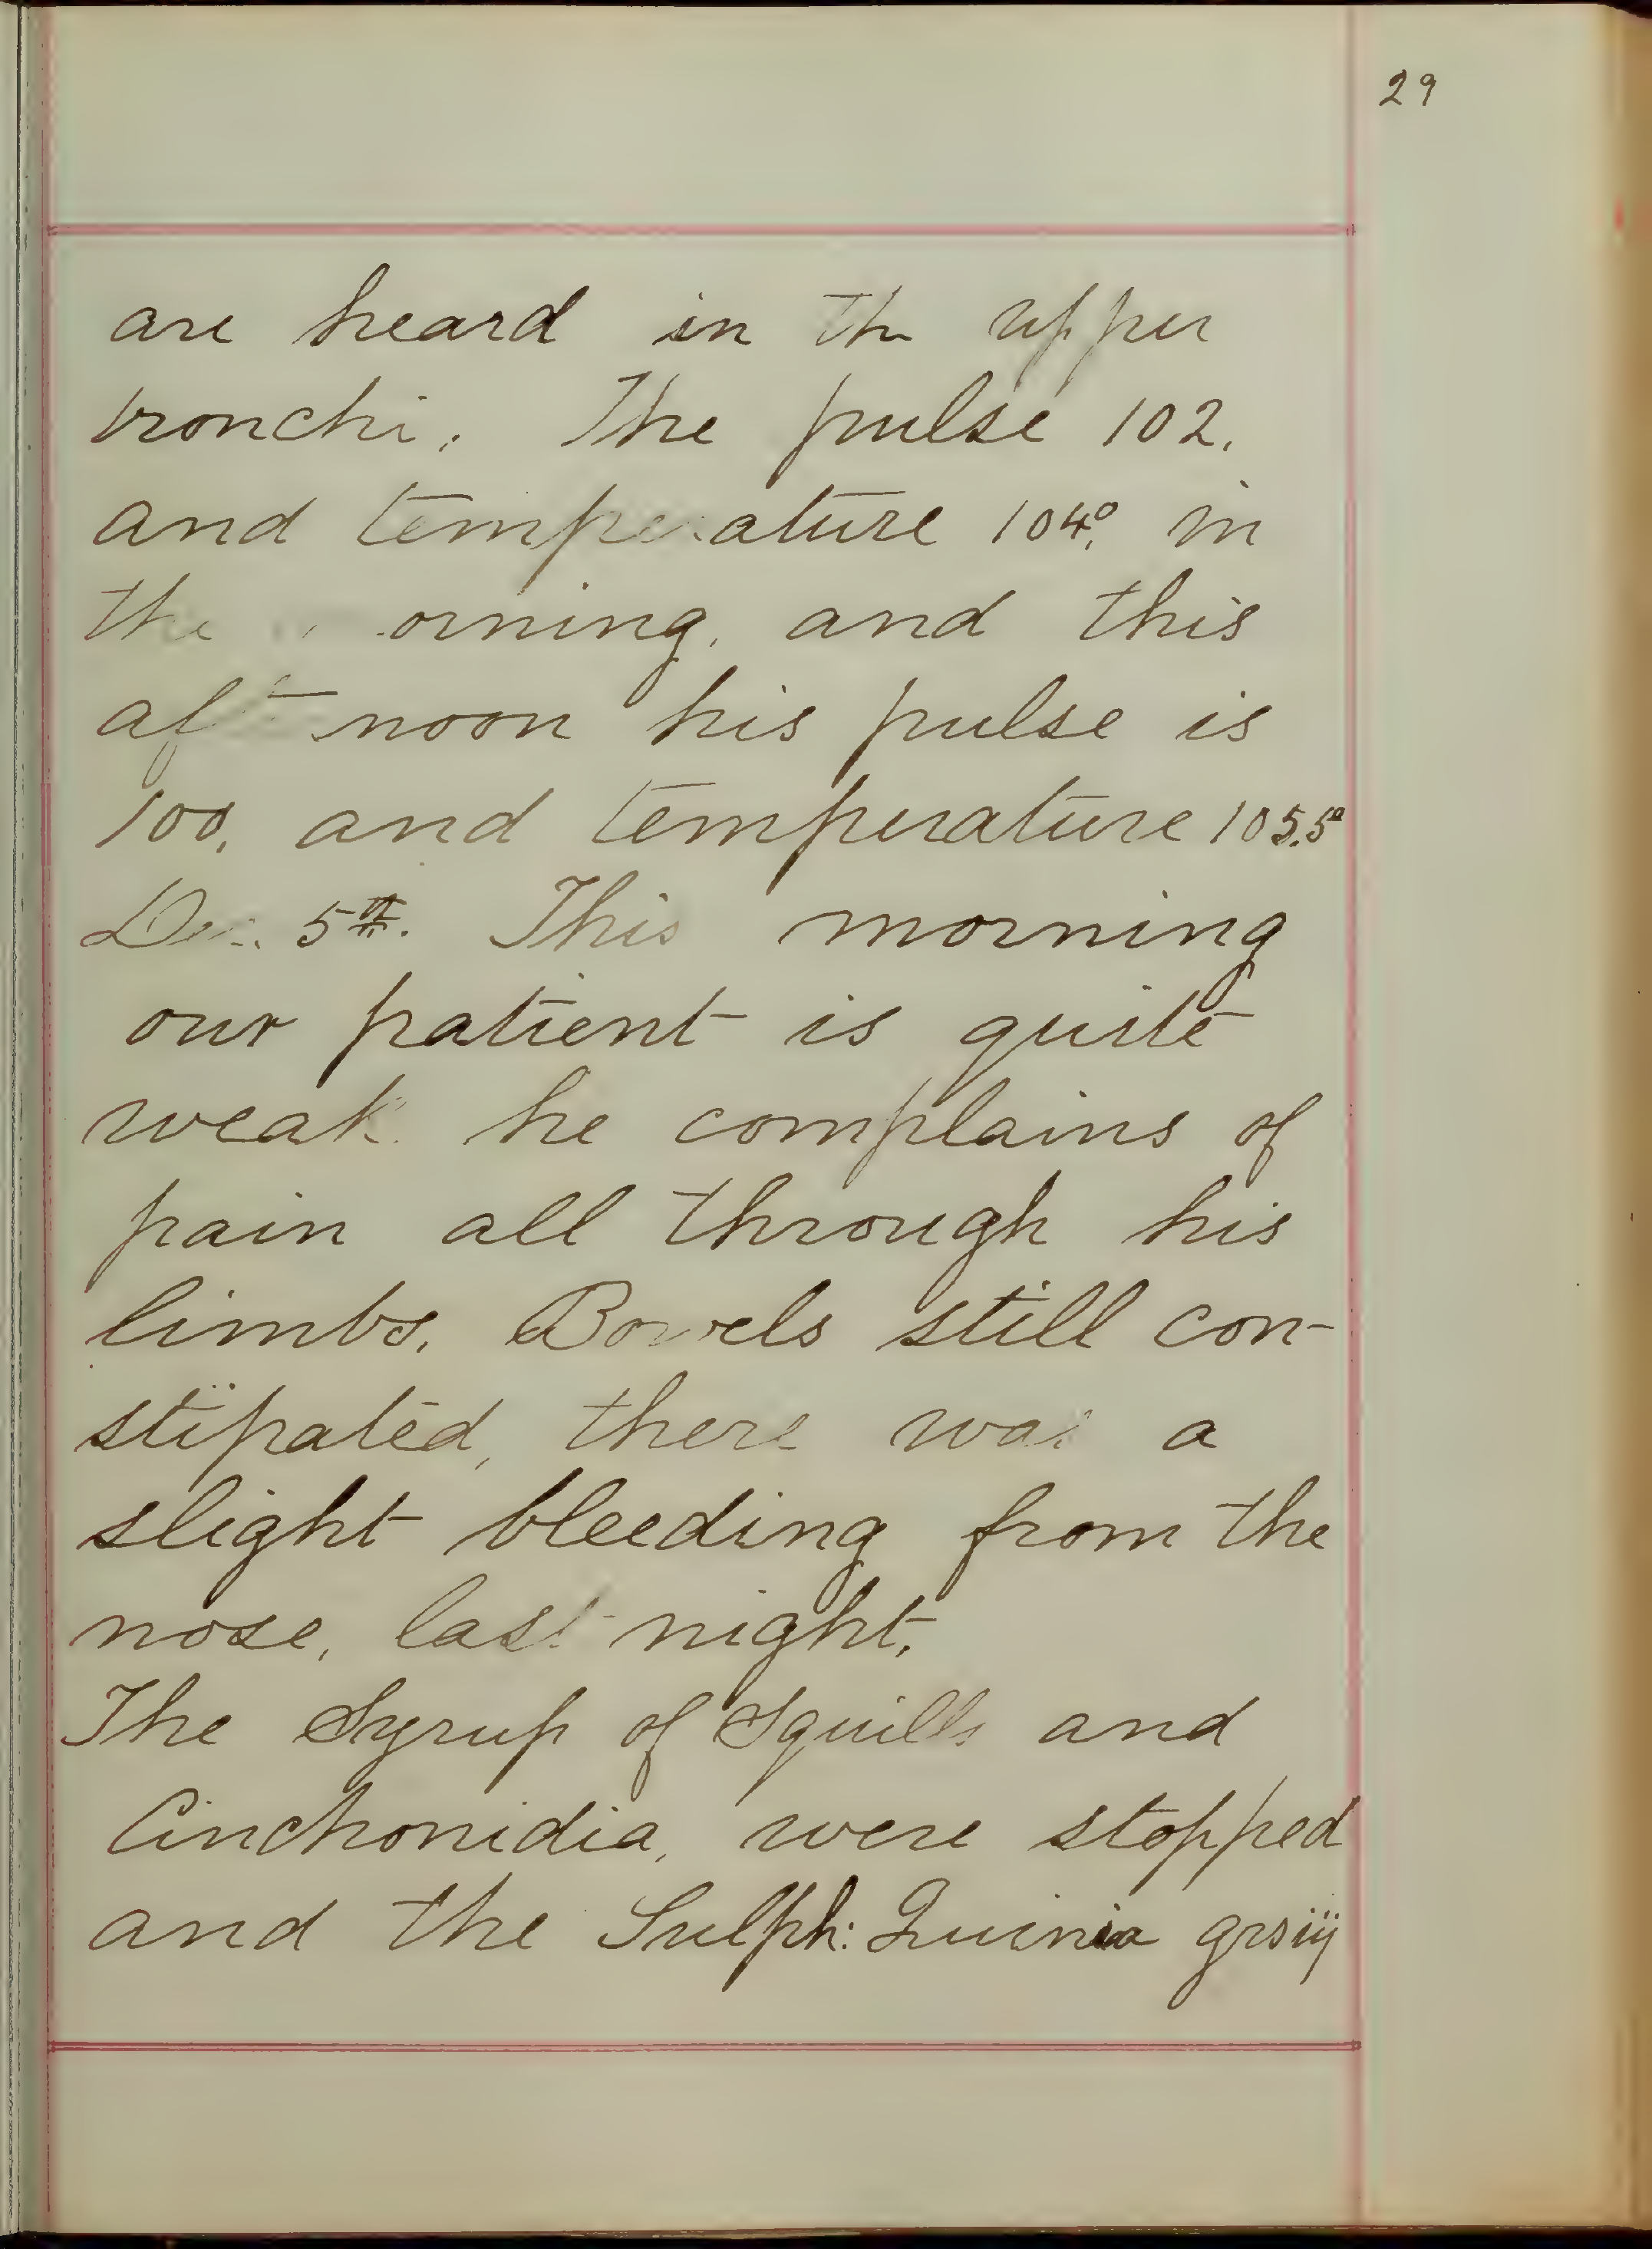 29
are heard in the upper
bronchi. The pulse 102.
and temperature 104°. in
the morning, and this
afternoon his pulse is
100, and temperature 105.5°
Dec. 5th. This morning
our patient is quite
weak he complains of
pain all through his
limbs. Bowels still con-
stipated, there was a
slight bleeding from the
nose, last night.
The Syrup of Squills and
Cinchonidia, were stopped
and the Sulph: Quinia grsiij